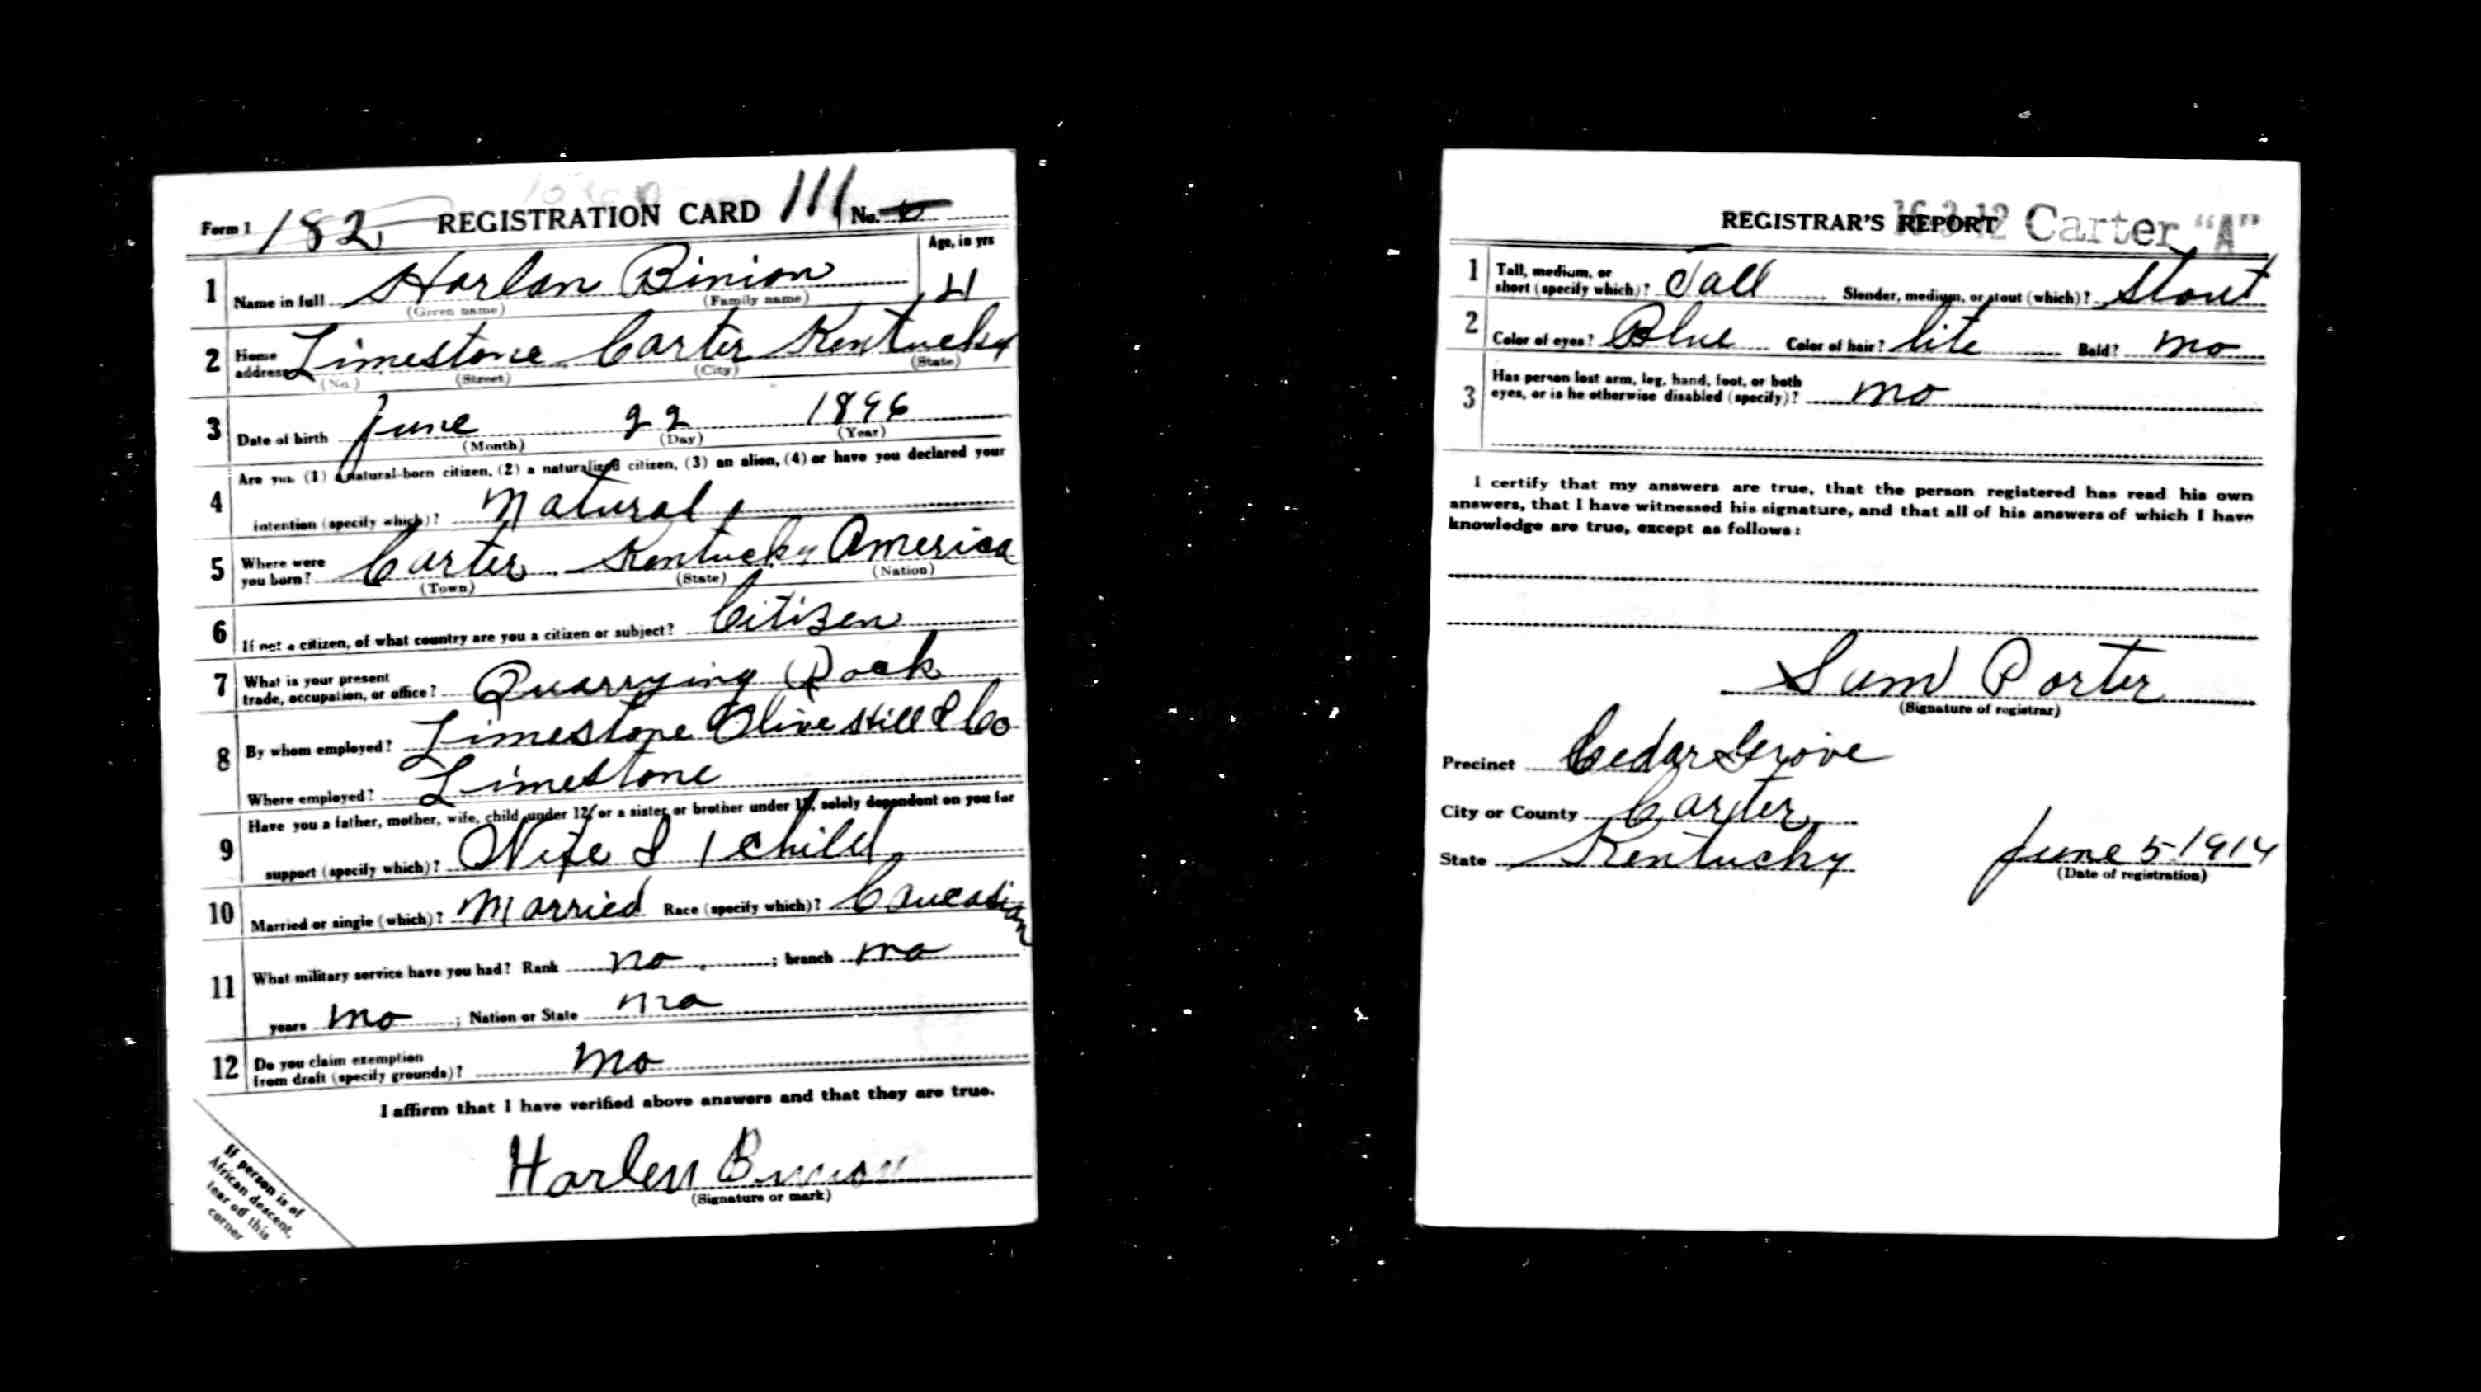 Form 1 182 REGISTRATION CARD 111 No.
Age, in yrs
1 Name in full Harlan Binion 21
(Given name) (Family name)
2 Home address Limestone Carter Kentucky
(No.) (Street) (City) (State)
3 Date of birth June 22 1896
(Month) (Day) (Year)
4 Are you (1) a natural-born citizen, (2) a naturalized citizen, (3) an alien, (4) or have you declared your
intention (specify which)? Natural
5 Where were you born? Carter Kentucky America
(Town) (State) (Nation)
6 If not a citizen, of what country are you a citizen or subject? Citizen
7 What is your present
trade, occupation, or office? Quarrying Rock
8 By whom employed? Limestone Olive Hill & Co
Where employed? Limestone
9 Have you a father, mother, wife, child under 12, or a sister or brother under 12, solely dependent on you for
support (specify which)? Wife & 1 child
10 Married or single (which)? Married Race (specify which)? Caucasian
11 What military service have you had? Rank no ; branch no
years no ; Nation or State no
12 Do you claim exemption
from draft (specify grounds)? no
I affirm that I have verified above answers and that they are true.
Harlen Binion
(Signature or mark)
If person is of
African descent,
tear off this
corner
REGISTRAR'S REPORT 16-3-12 Carter "A"
1 Tall, medium, or
short (specify which)? Tall Slender, medium, or stout (which)? Stout
2 Color of eyes? Blue Color of hair? lite Bald? no
3 Has person lost arm, leg, hand, foot, or both
eyes, or is he otherwise disabled (specify)? no
I certify that my answers are true, that the person registered has read his own
answers, that I have witnessed his signature, and that all of his answers of which I have
knowledge are true, except as follows:
Sam Porter
(Signature of registrar)
Precinct Cedar Grove
City or County Carter
State Kentucky June 5-1917
(Date of registration)